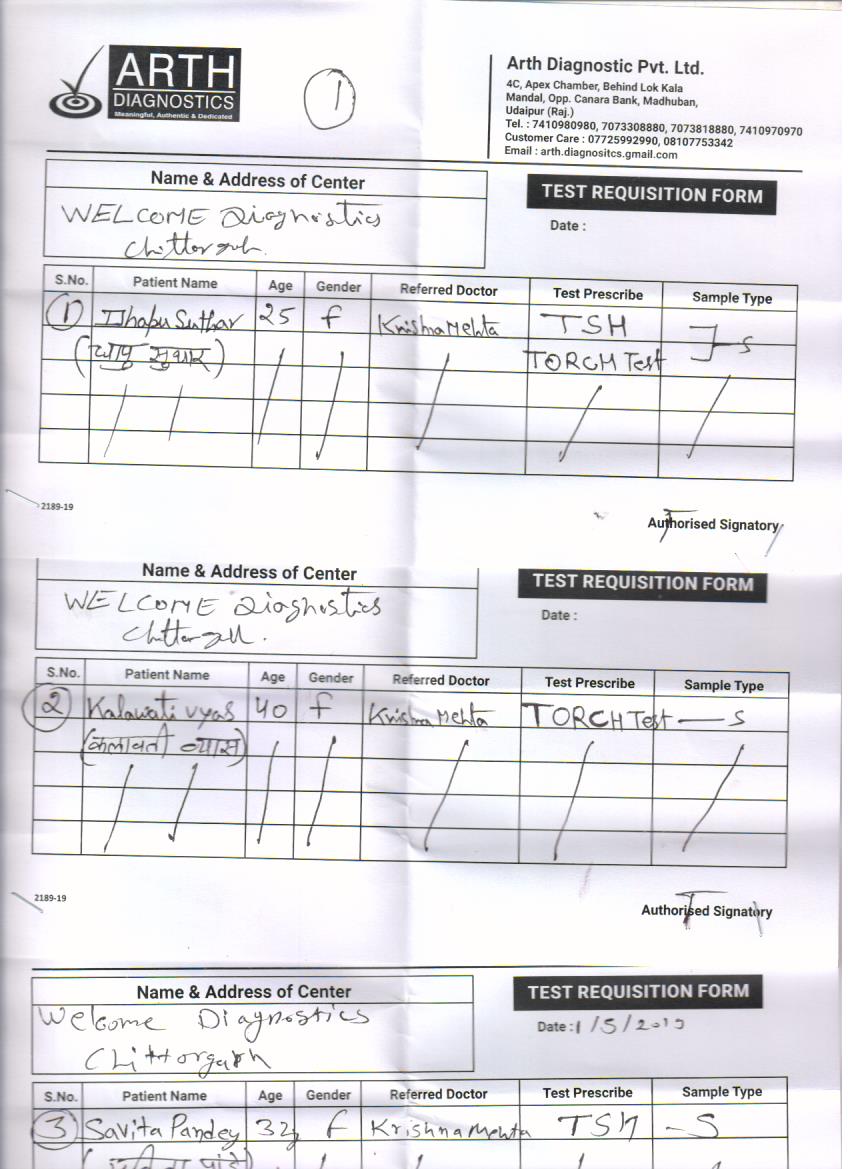 ARTH
DIAGNOSTICS
Meaningful, Authentic & Dedicated
1
Arth Diagnostic Pvt. Ltd.
4C, Apex Chamber, Behind Lok Kala
Mandal, Opp. Canara Bank, Madhuban,
Udaipur (Raj.)
Tel. : 7410980980, 7073308880, 7073818880, 7410970970
Customer Care : 07725992990, 08107753342
Email : arth.diagnositcs.gmail.com
Name & Address of Center
TEST REQUISITION FORM
WELCOME Diagnostics
Date :
S.No. Patient Name Age Gender Referred Doctor Test Prescribe Sample Type
1 Dhapu Suthar 25 f Krishna Mehta TSH S
TORCH Test
2189-19
Authorised Signatory
Name & Address of Center
TEST REQUISITION FORM
WELCOME Diagnostics
Date :
S.No. Patient Name Age Gender Referred Doctor Test Prescribe Sample Type
2 Kalawati vyas 40 f Krishna Mehta TORCH Test — S
(कलावती व्यास)
2189-19
Authorised Signatory
Name & Address of Center
TEST REQUISITION FORM
Welcome Diagnostics
Date : 1/5/2019
Chittorgarh
S.No. Patient Name Age Gender Referred Doctor Test Prescribe Sample Type
3 Savita Pandey 32 f Krishna Mehta TSH - S